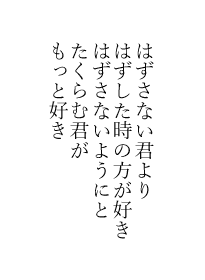 はずさない君より
はずした時の方が好き
はずさないようにと
たくらむ君が
もっと好き